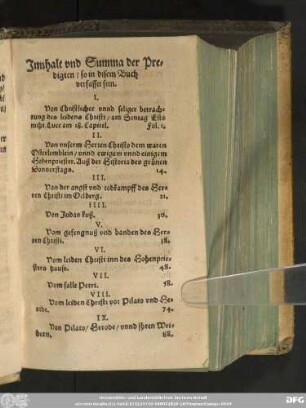 Innhalt vnd Summa der Pre-
digten / so in disem Buch
verfasset sein.
I.
Von Christlicher vnnd seliger betrach-
tung des leidens Christi / am Sontag Esto
mihi. Luce am 18. Capitel. Fol. 1.
II.
Von vnserm Herren Christo dem waren
Osterlemblein / vnnd ewigem vnnd einigem
Hohenpriester. Auß der Historia des grünen
Donnerstags. 14.
III.
Von der angst vnd todtkampff des Her-
ren Christi im Oelberg. 21.
IIII.
Von Judas kuß. 30.
V.
Vom gefengnuß vnd banden des Her-
ren Christi. 38.
VI.
Vom leiden Christi inn des Hohenprie-
sters hause. 48.
VII.
Vom falle Petri. 58.
VIII.
Vom leiden Christi vor Pilato vnd He-
rode. 74.
IX.
Von Pilato / Herode / vnnd ihren Wei-
bern. 88.
DFG